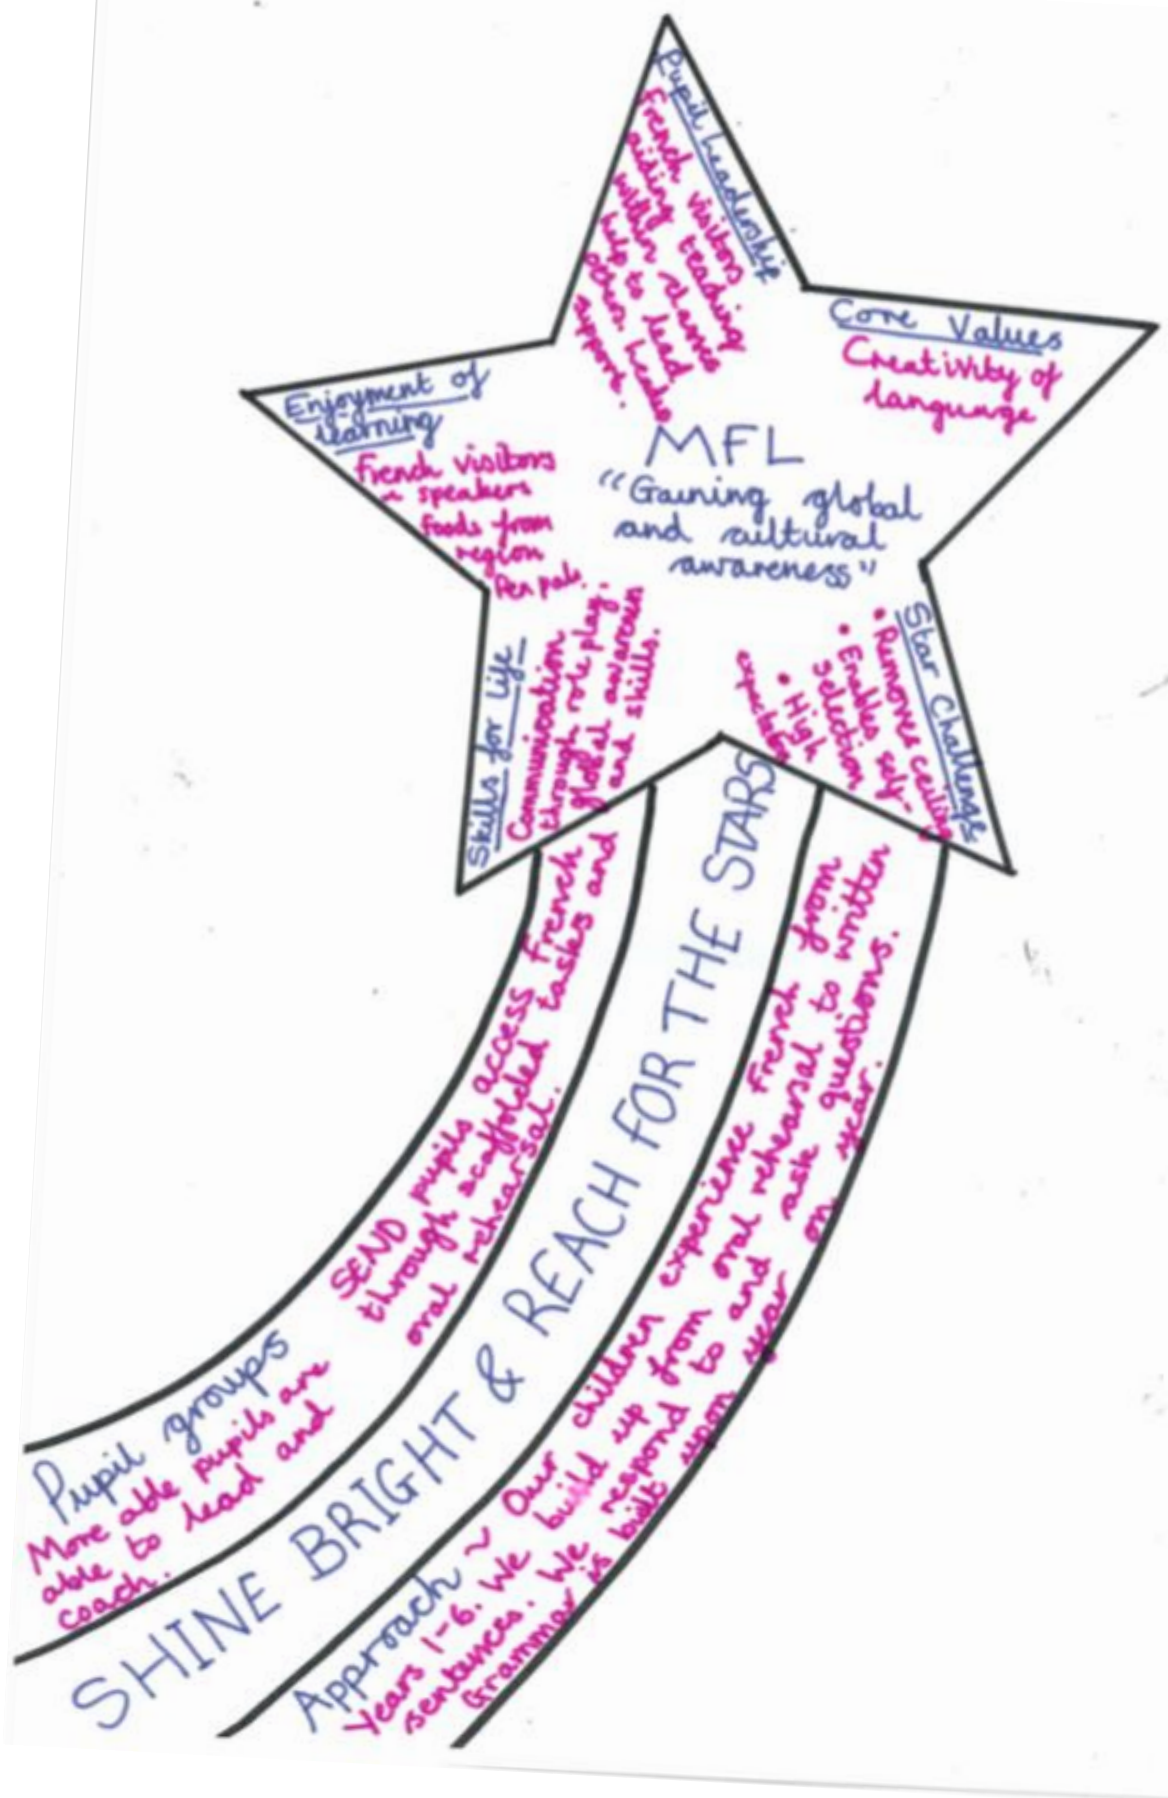 Pupil Leadership
French visitors
aiding teaching
within classes
help to lead
other. heads
support.
Core Values
Creativity of
language
Enjoyment of
learning
French visitors
~ speakers
foods from
region
Pen pals.
MFL
"Gaining global
and cultural
awareness"
Skills for Life
Communication
through role play.
global awareness
and skills.
Star Challenge
• Removes ceiling
• Enables self-
selection
• High
expectations
Pupil groups
More able pupils are
able to lead and
coach.
SEND pupils access French
through scaffolded tasks and
oral rehearsal.
SHINE BRIGHT & REACH FOR THE STARS
Approach ~ Our children experience French from
Years 1-6. We build up from oral rehearsal to written
sentences. We respond to and ask questions.
Grammar is built upon year on year.